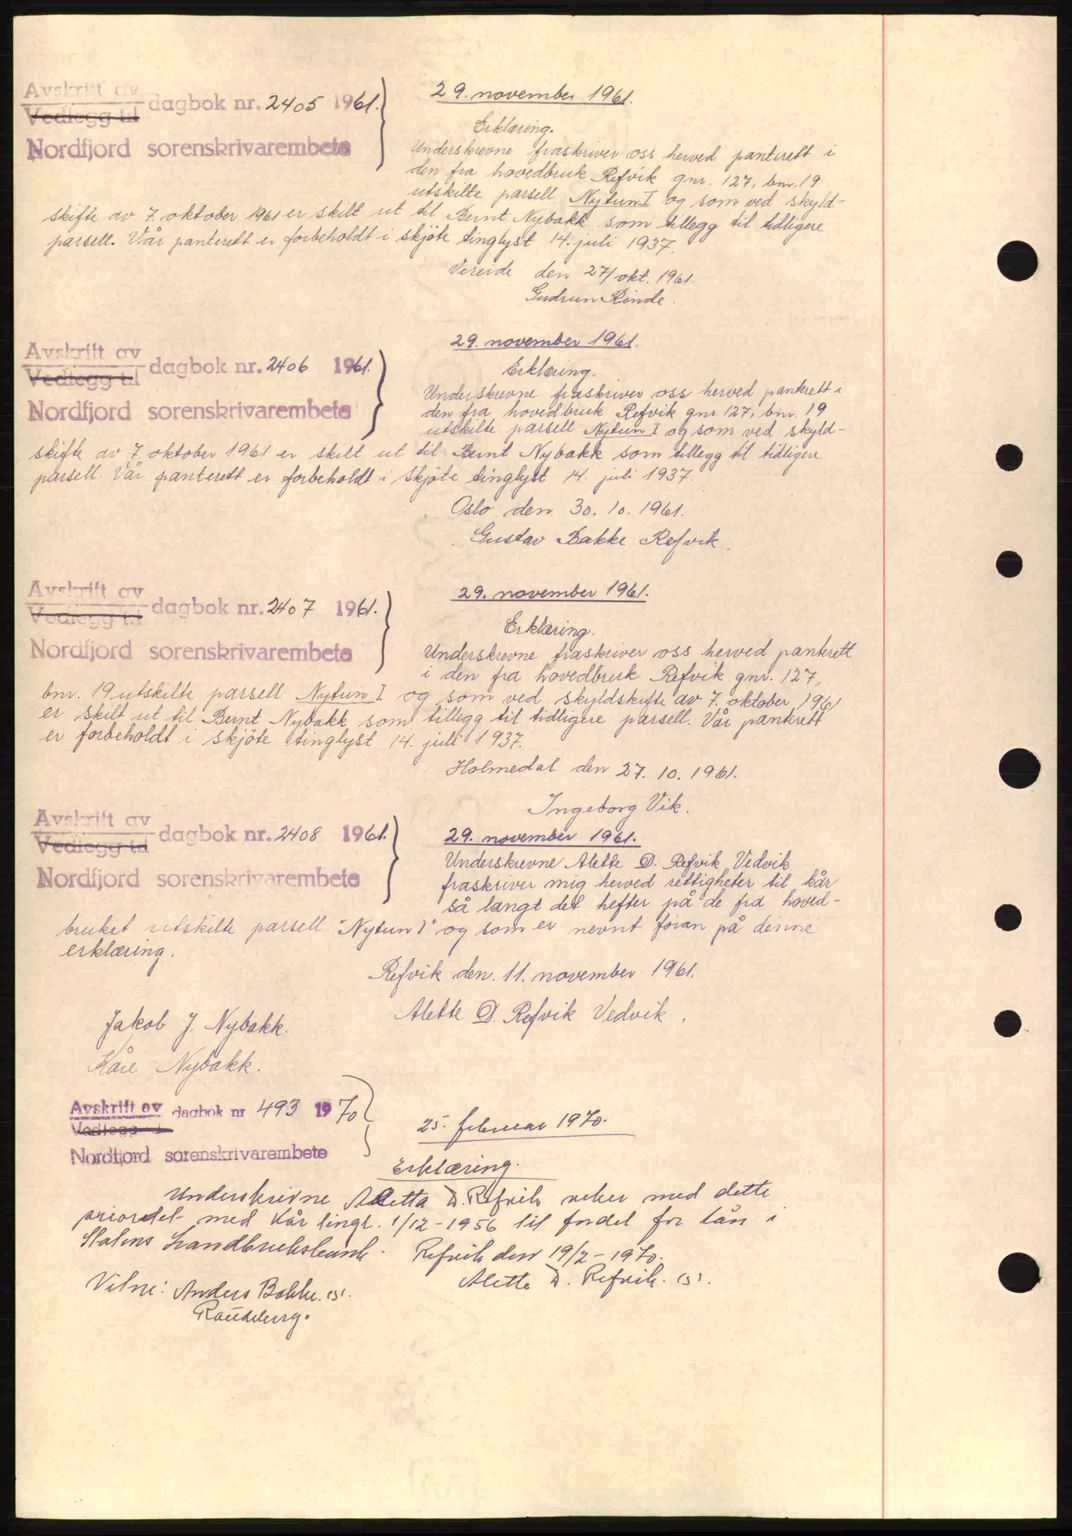 Avskrift av
Vedlegg til dagbok nr. 2405 1961.
Nordfjord sorenskrivarembete
29. november 1961.
Erklæring.
Underskrevne fraskriver oss herved panterett i
den fra hovedbruk Refvik gnr. 127, bnr. 19
utskilte parsell Nytun I og som ved skyld-
skifte av 7. oktober 1961 er skilt ut til Bernt Nybakk som tillegg til tidligere
parsell. Vår panterett er forbeholdt i skjöte tinglyst 14. juli 1937.
Vereide den 27/okt. 1961.
Gudrun Rinde.
Avskrift av
Vedlegg til dagbok nr. 2406 1961.
Nordfjord sorenskrivarembete
29. november 1961.
Erklæring.
Underskrevne fraskriver oss herved panterett i
den fra hovedbruk Refvik gnr. 127, bnr. 19
utskilte parsell Nytun I og som ved skyld-
skifte av 7. oktober 1961 er skilt ut til Bernt Nybakk som tillegg til tidligere
parsell. Vår panterett er forbeholdt i skjöte tinglyst 14. juli 1937.
Oslo den 30. 10. 1961.
Gustav Bakke Refvik.
Avskrift av
Vedlegg til dagbok nr. 2407 1961.
Nordfjord sorenskrivarembete
29. november 1961.
Erklæring.
Underskrevne fraskriver oss herved panterett
i den fra hovedbruk Refvik gnr. 127,
bnr. 19 utskilte parsell Nytun I og som ved skyldskifte av 7. oktober 1961
er skilt ut til Bernt Nybakk som tillegg til tidligere parsell. Vår panterett
er forbeholdt i skjöte tinglyst 14. juli 1937.
Holmedal den 27. 10. 1961.
Ingeborg Vik.
Avskrift av
Vedlegg til dagbok nr. 2408 1961.
Nordfjord sorenskrivarembete
29. november 1961.
Underskrevne Alette D. Refvik Vedvik
fraskriver mig herved rettigheter til kår
så langt det hefter på de fra hoved-
bruket utskilte parsell "Nytun I" og som er nevnt foran på denne
erklæring.
Refvik den. 11. november 1961.
Alette D. Refvik Vedvik.
Jakob J. Nybakk.
Kåre Nybakk.
Avskrift av
Vedlegg til dagbok nr 493 1970
Nordfjord sorenskrivarembete
25. februar 1970.
Erklæring.
Underskrivne Aletta D. Refvik veker med dette
prioritet med kår tingl. 1/12-1956 til fordel for lån i
Statens Landbruksbank. Refvik den 19/2-1970.
Alette D. Refvik. (s).
Vitne: Anders Bakke. (s).
Raudeberg.